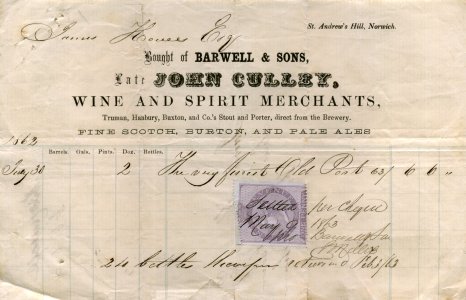 St. Andrew's Hill, Norwich.
James Esq
Bought of BARWELL & SONS,
Late JOHN CULLEY,
WINE AND SPIRIT MERCHANTS,
Truman, Hanbury, Buxton, and Co.'s Stout and Porter, direct from the Brewery.
FINE SCOTCH, BURTON, AND PALE ALES
1862
Barrels. Gals. Pints. Doz. Bottles.
July 30 2 The very finest Old Port 63/ 6 6 "
Settled per Cheque
May 9 1863
Barwell & Sons
24 bottles